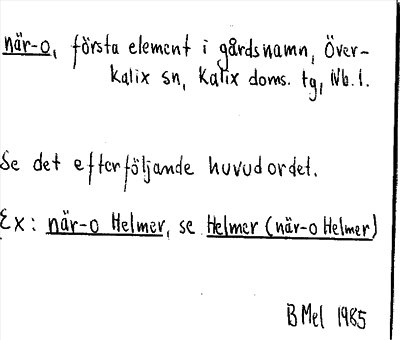 när-o, första element i gårdsnamn, Över-
kalix sn, Kalix doms. tg, Nb. l.
Se det efterföljande huvudordet.
Ex: när-o Helmer, se Helmer (när-o Helmer)
BMel 1985